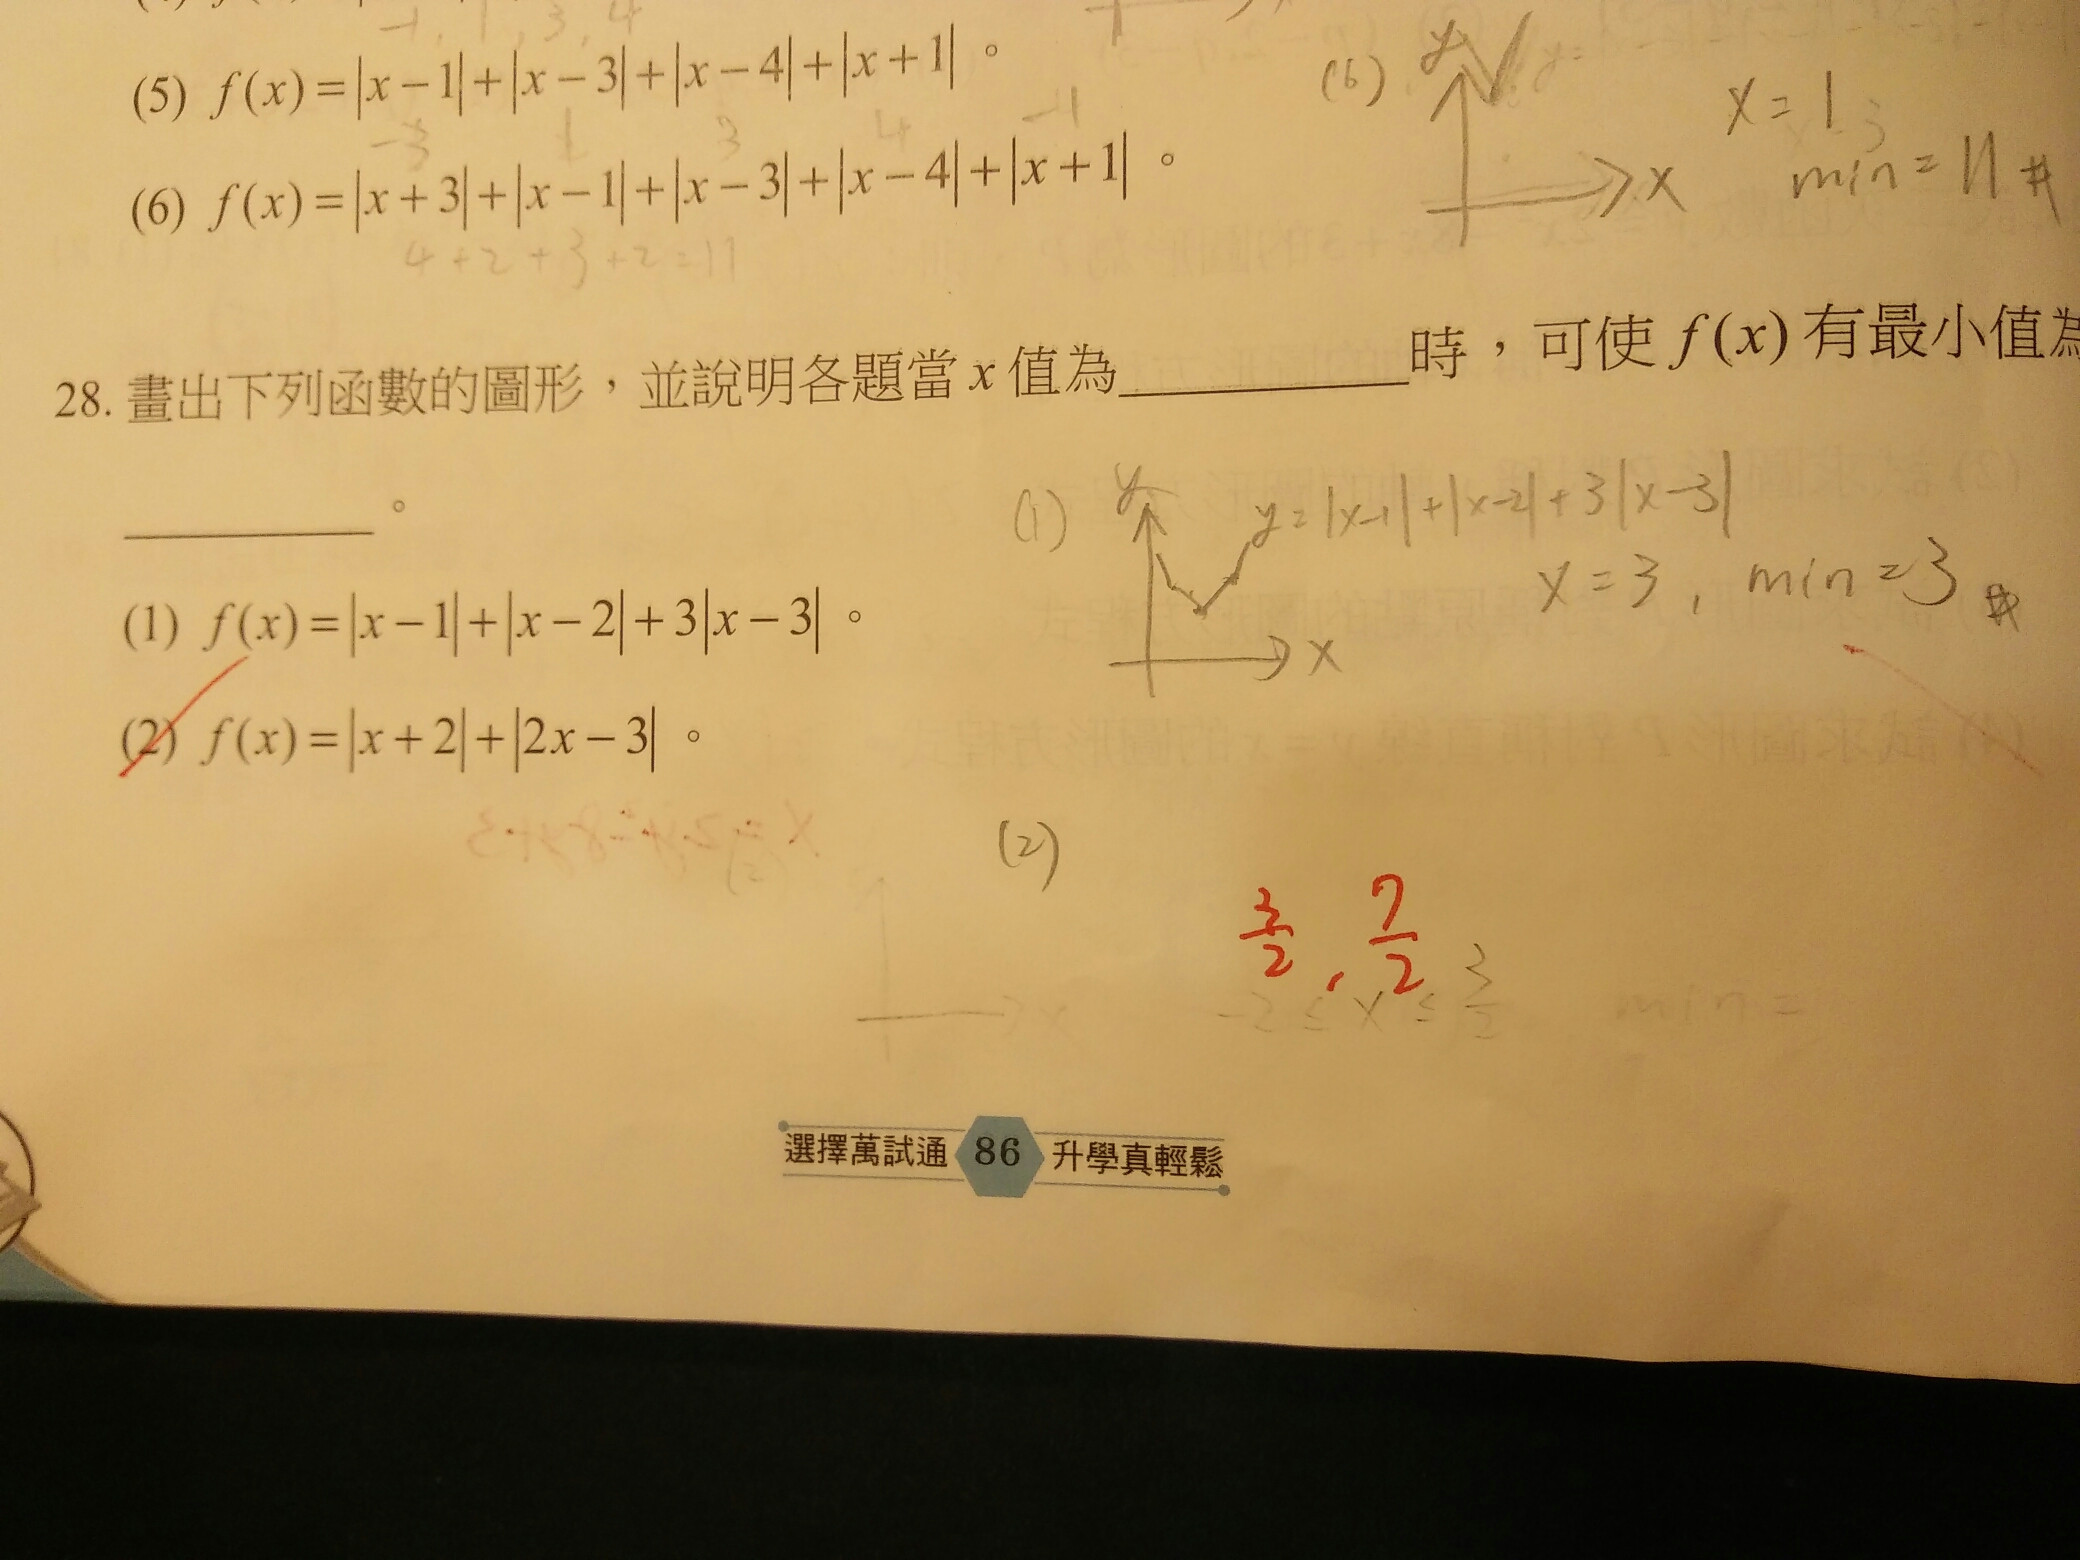 -1, 1, 3, 4
(5) f(x)=|x-1|+|x-3|+|x-4|+|x+1|。
-3 1 3 4 -1
(6) f(x)=|x+3|+|x-1|+|x-3|+|x-4|+|x+1|。
4+2+3+2=11
(6) y x
x=1
min=11#
28. 畫出下列函數的圖形，並說明各題當x值為________時，可使f(x)有最小值為
________。
(1) f(x)=|x-1|+|x-2|+3|x-3|。
(2) f(x)=|x+2|+|2x-3|。
(1) y y=|x-1|+|x-2|+3|x-3|
x=3, min=3#
x
(2)
3/2, 7/2
-2≤x≤3/2 min=
x
選擇萬試通 86 升學真輕鬆